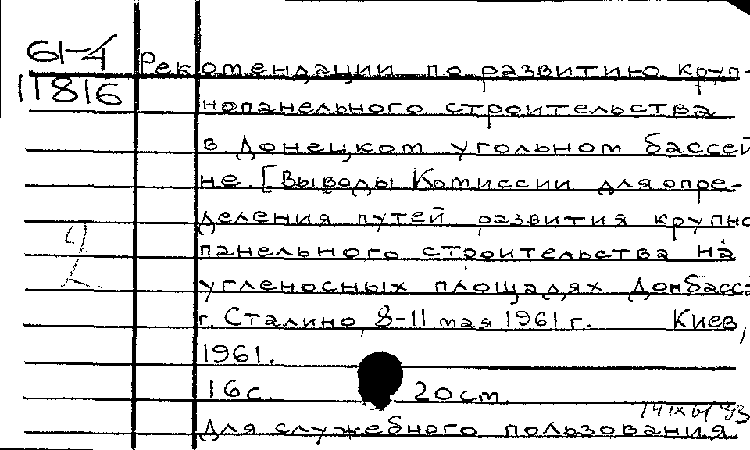 61-4
11816
Рекомендации по развитию круп-
нопанельного строительства
в Донецком угольном бассей
не. [Выводы Комиссии для опре-
деления путей развития крупно
панельного строительства на
угленосных площадях Донбасса
г. Сталино, 8-11 мая 1961 г. Киев,
1961.
16 с. 20 см.
Для служебного пользования